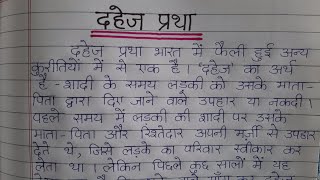 दहेज प्रथा
दहेज प्रथा भारत में फैली हुई अन्य
कुरीतियों में से एक है। 'दहेज' का अर्थ
है - शादी के समय लड़की को उसके माता-
पिता द्वारा दिए जाने वाले उपहार या नकदी।
पहले समय में लड़की की शादी पर उसके
माता-पिता और रिश्तेदार अपनी मर्जी से उपहार
देते थे, जिसे लड़के का परिवार स्वीकार कर
लेता था। लेकिन पिछले कुछ सालों में यह